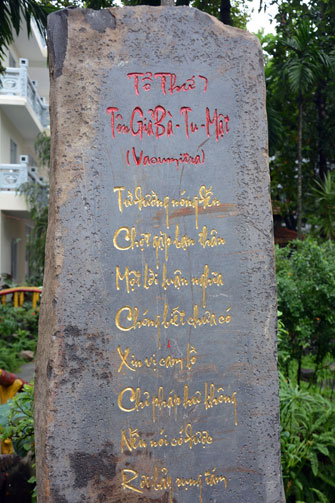 Tổ Thứ 7
Tôn Giả Bà - Tu - Mật
(Vasumitra)
Từ hướng nóng đến
Chợt gặp bạn thân
Một lời luận nghĩa
Chóng biết chưa có
Xin vì cam lồ
Chỉ pháp hư không
Nếu nói có được
Rơi bẫy